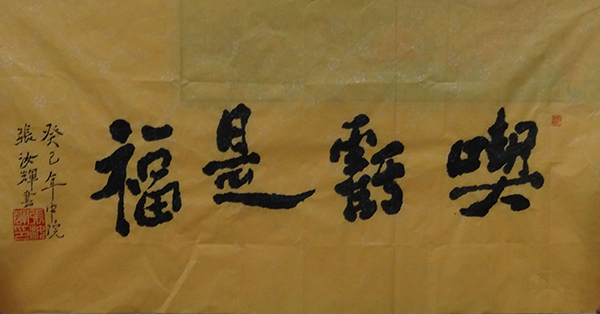 喫虧是福
癸巳年中院
張汝輝書